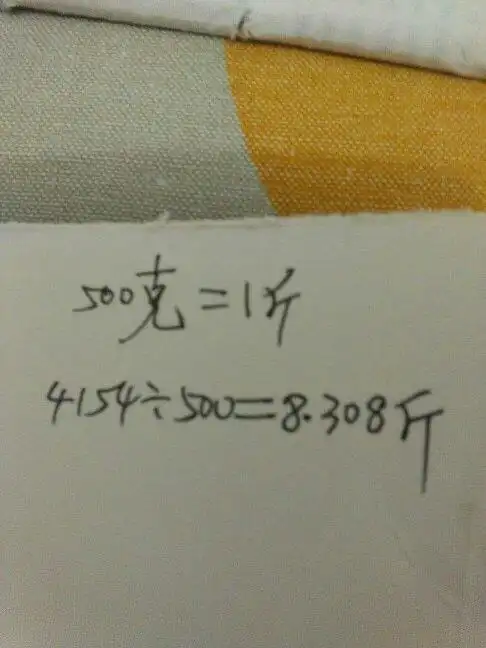 500克=1斤
4154÷500=8.308斤